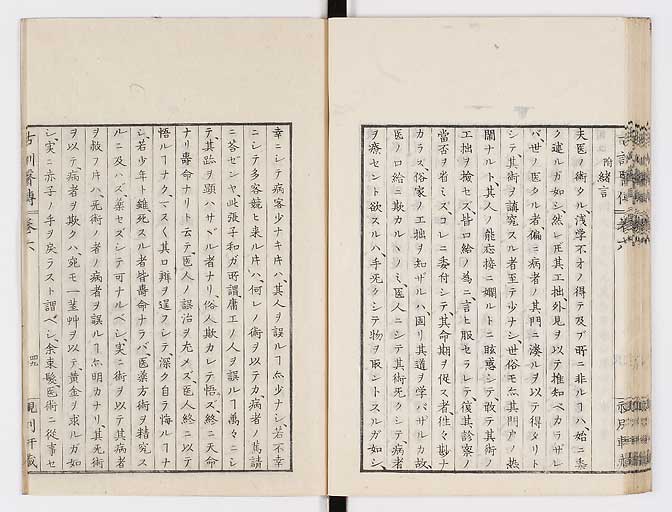 附緒言
夫医ノ術タル、浅学不才ノ得テ及ブ所ニ非ルヿハ、始ニ委
ク述ルガ如シ、然レ𪜈其工拙、外見ヲ以テ推知ベカラザレ
バ、世ノ医タル者偏ニ病者ノ其門ニ湊ルヲ以テ得タリト
シテ、其術ヲ講究スル者至テ少ナシ、世俗モ亦其門戸ノ熱
閙ナルト、其人ノ能応接ニ嫺ルトニ眩惑シテ、敢テ其術ノ
工拙ヲ撿セズ、皆口給ノ為ニ言ヒ服セラレテ、復其診察ノ
當否ヲ省ミズ、コレニ委付シテ、其命期ヲ促ス者、徃々尠ナ
カラズ、俗家ノ工拙ヲ知ザルハ、固リ其道ヲ学バザルカ故、
医ノ口給ニ欺カルヽノミ、医人ニシテ其術死クシテ病者
ヲ療セント欲スルハ、手死クシテ物ヲ取ントスルガ如シ、
幸ニシテ病客少ナキ片ハ、其人ヲ誤ルヿ亦少ナシ、若不幸
ニシテ多客競ヒ来ル片ハ、何レノ術ヲ以テカ、病者ノ篤請
ニ荅ゼンヤ、此張子和ガ所謂、庸工ノ人ヲ誤ルヿ萬々ニシ
テ、其跡ヲ顕ハサヾル者ナリ、俗人欺カレテ悟ズ、終ニ天命
ナリ壽命ナリト云テ、医人ノ誤治ヲ尤メズ、医人終ニ以テ
悟ルヿナク、マスく其口辨ヲ逞フシテ、深ク自ラ悔ルヿナ
シ、若少年ト雖死スル者皆壽命ナラバ、医薬方術ヲ精究ス
ルニ及ハズ、薬セズシテ可ナルベシ、実ニ術ヲ以テ其病者
ヲ救フ片ハ、死術ノ者ノ病者ヲ誤ルヿ亦明カナリ、其死術
ヲ以テ、病者ヲ欺クハ、宛モ一莖艸ヲ以テ、黄金ヲ求ルガ如
シ、実ニ赤子ノ手ヲ戻ラスト謂ベシ、余束髪、医術ニ従事セ
古訓醫傳
巻六
四九